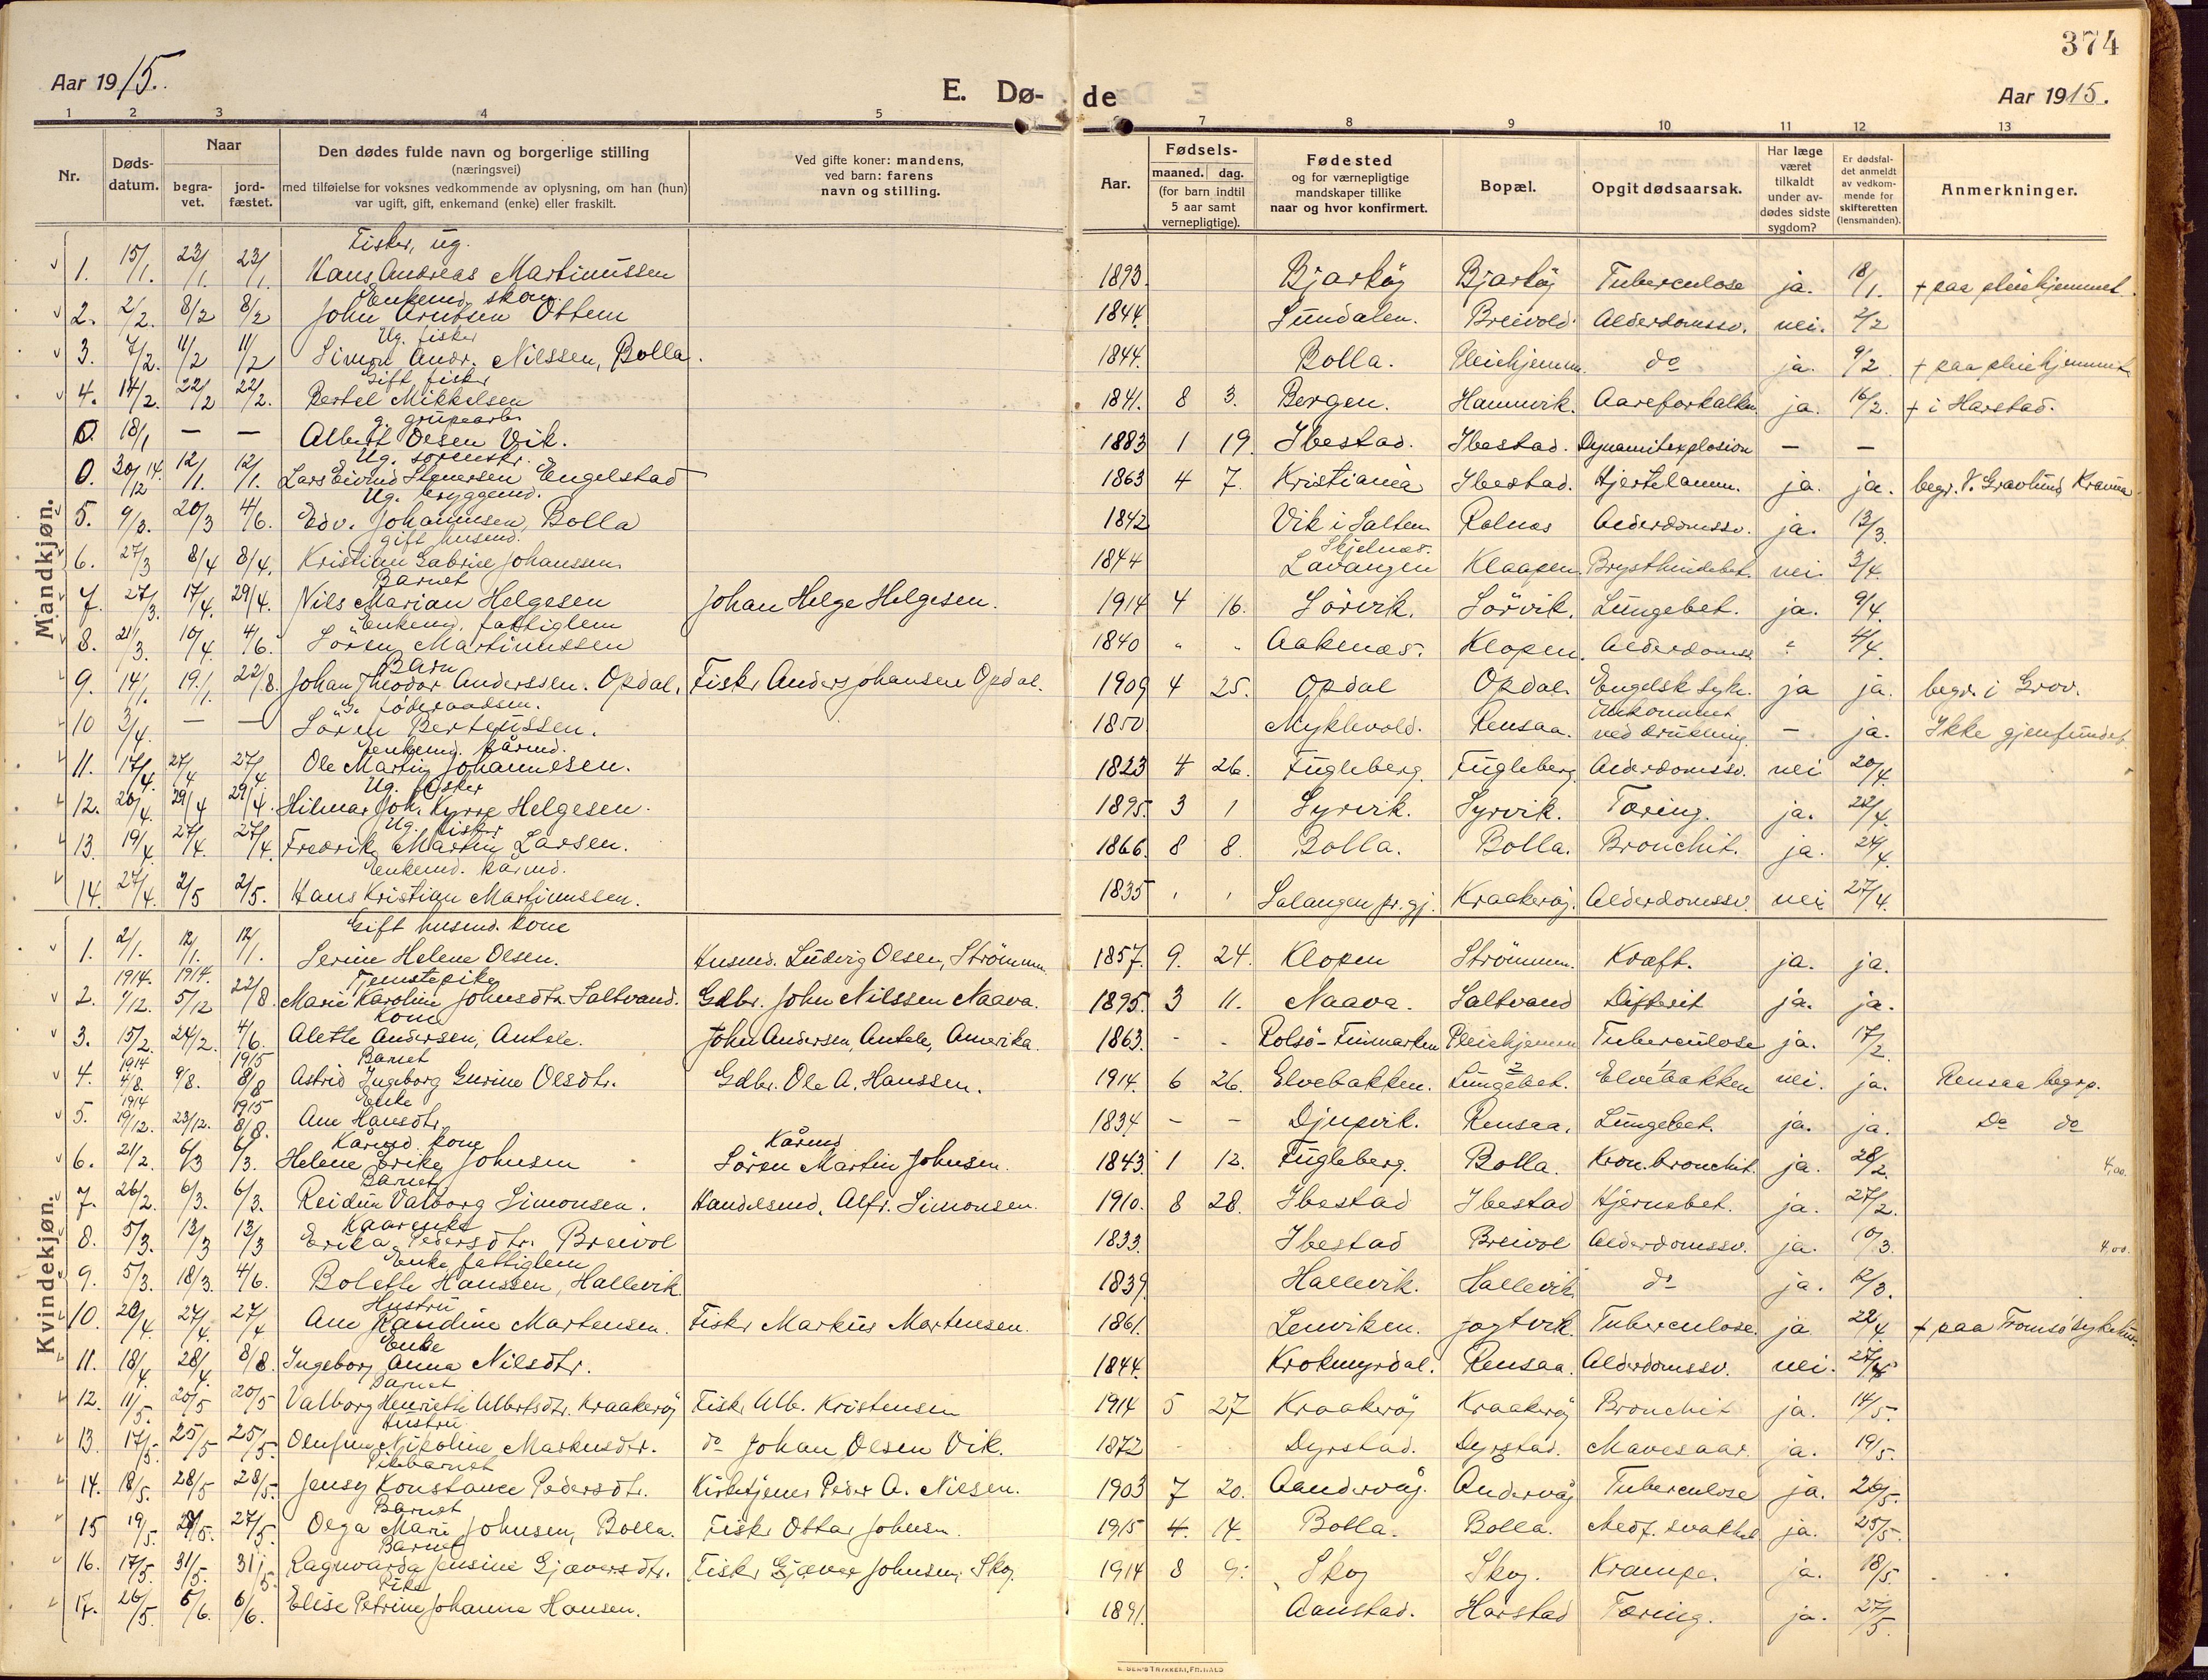 374
Aar 1915.
E. Dø-de
Aar 1915.
1 2 3 4 5 7 8 9 10 11 12 13
Nr.
Døds-datum.
Naar
begra-vet.
jord-fæstet.
Den dødes fulde navn og borgerlige stilling
(næringsvei)
med tilføielse for voksnes vedkommende av oplysning, om han (hun)
var ugift, gift, enkemand (enke) eller fraskilt.
Ved gifte koner: mandens,
ved barn: farens
navn og stilling.
Aar.
Fødsels-
maaned. dag.
(for barn indtil
5 aar samt
vernepligtige).
Fødested
og for værnepligtige
mandskaper tillike
naar og hvor konfirmert.
Bopæl.
Opgit dødsaarsak.
Har læge
været
tilkaldt
under av-
dødes sidste
sygdom?
Er dødsfal-
det anmeldt
av vedkom-
mende for
skifteretten
(lensmanden).
Anmerkninger.
Mandkjøn.
Fisker, ug.
1. 15/1. 23/1. 23/1. Hans Andreas Martinussen 1893. Bjarköy Bjarköy Tuberculose ja. 18/1. + paa pleiehjemmet.
Enkemd.
2. 2/2. 8/2 8/2 John Arntsen Ottem 1844. Sundalen. Breivold. Alderdomssv. nei. 2/2
Ug. fisker
3. 7/2. 11/2 11/2 Simon Andr. Nilssen, Bolla. 1844. Bolla. Pleiehjemm. do ja. 9/2. + paa pleiehjemmet
Gift fisker
4. 14/2. 22/2 22/2. Bertel Mikkelsen 1841. 8 3. Bergen. Hamnvik. Aareforkalkn. ja. 16/2. + i Harstad.
g. grupearb.
0. 18/1 — — Albert Olsen Vik. 1883 1 19. Ibestad. Ibestad. Dynamitexplosion — —
Ug. sorenskr.
0. 30/12 14. 12/1. 12/1. Lars Eivind Stenersen Engelstad 1863 4 7. Kristiania Ibestad. Hjertelamm. ja. ja. begr. V. Gravlund Krania
Ug. bryggemd.
5. 9/3. 20/3 4/6. Edv. Johannesen, Bolla 1842 Vik i Salten Rolnes Alderdomssv. ja. 13/3.
gift husmd.
6. 27/3 8/4 8/4. Kristian Gabriel Johanssen. 1844 Skjelnes. Lavangen Klaapen. Brysthindebet. nei. 3/4.
Barnet
7. 27/3. 17/4. 29/4. Nils Marian Helgesen Johan Helge Helgesen. 1914 4 16. Sörvik. Sörvik. Lungebet. ja. 9/4.
Enkemd. fattiglem
8. 21/3. 10/4. 4/6. Sören Martinussen 1840 " " Aakenes. Klopen. Alderdomss. 4/4.
Barn
9. 14/1. 19/1. 22/8. Johan Theodor Anderssen. Opdal. Fiskr Anders Johansen Opdal. 1909 4 25. Opdal Opdal. Engelsk syk. ja ja. begr. i Grov.
G. föderaadsm.
10 3/4. — — Sören Berteussen. 1850 Myklevold. Rensaa. Omkommet ved drukning. — ja. Ikke gjenfundet.
Enkemd. kårmd.
11. 17/4. 27/4 27/4. Ole Martin Johannesen. 1823 4 26. Fugleberg. Fugleberg. Alderdomssv. nei 20/4.
Ug. fisker
12. 20/4. 29/4 29/4. Hilmar Joh. Kyrre Helgesen. 1895. 3 1 Syrvik. Syrvik. Tæring. ja. 22/4.
Ug. fisker
13. 19/4. 27/4. 27/4. Fredrik Martin Larsen. 1866. 8 8. Bolla. Bolla. Bronchit. ja. 24/4.
Enkemd. kårmd.
14. 27/4. 2/5 2/5. Hans Kristian Martinussen. 1835 Salangen pr.gj. Kraakeröj. Alderdomssv. nei 27/4.
Kvindekjøn.
Gift husmd. kone
1. 2/1. 12/1. 12/1. Serine Helene Olsen. Husmd. Ludvig Olsen, Strömmen. 1857. 9. 24. Klopen Strömmen. Kræft. ja. ja.
Tjenstepike
2. 1914. 1/12. 1914. 5/12 22/8. Marie Karoline Johnsdtr. Saltvand. Gdbr. John Nilssen Naava. 1895. 3 11. Naava. Saltvand Difterit ja. ja.
Kone
3. 15/2. 24/2. 4/6. Alette Andersen, Antele. John Andersen, Antele, Amerika. 1863. - - Rolsö-Finmarken Pleiehjemm Tuberculose ja. 17/2.
Barnet
4. 1914 4/8. 9/8. 1915 8/8 Astrid Ingeborg Gurine Olsdtr. Gdbr. Ole A. Hanssen. 1914. 6 26. Elvebakken. 2 Lungebet. 1 Elvebakken nei. ja. Rensaa begrp.
Enke
5. 1914 19/12. 23/12. 1915 8/8. Ane Hansdtr. 1834 — — Djupvik. Rensaa. Lungebet. ja. ja. Do do
Kårmd. kone
6. 21/2. 6/3 6/3. Helene Erike Johnsen Kårmd Sören Martin Johnsen. 1843. 1 12. Fugleberg. Bolla. Kron. bronchit. ja. 28/2. 4,00.
Barnet
7. 26/2. 6/3. 6/3. Reidun Valborg Simonsen. Handelsmd. Alfr. Simonsen. 1910. 8 28. Ibestad Ibestad Hjernebet. ja. 27/2.
Kaarenke
8. 5/3. 13/3 13/3 Erika Pedersdtr. Breivol 1833. Ibestad Breivol Alderdomssv. ja. 10/3. 4,00.
Enke fattiglem
9. 5/3. 18/3. 4/6. Bolette Hanssen, Hallevik. 1839. Hallevik. Hallevik do ja. 12/3.
Hustru
10. 20/4. 27/4. 27/4 Ane Randine Martensen. Fiskr Markus Martensen. 1861. Lenviken. Jogtvik. Tuberculose. ja 22/4. + paa Tromsö sykehus.
Enke
11. 18/4. 28/4. 8/8. Ingeborg Anna Nilsdtr. 1844. Krokmyrdal. Rensaa. Alderdomssv. nei.
Barnet
12. 11/5. 20/5 20/5 Valborg Henriette Albertsdtr. Kraakeröj Fiskr Alb. Kristensen 1914 5 27 Kraakeröj Kraakeröj Bronchit ja. 14/5.
Hustru
13. 17/5. 25/5 25/5. Olufine Nikoline Markusdtr. do Johan Olsen Vik. 1872 Dyrstad. Dyrstad. Mavesaar. ja. 19/5.
Pikebarnet
14. 18/5. 28/5 28/5. Jensy Konstance Pedersdtr. Kirketjener Peder A. Nilsen. 1903 7 20. Aandervåg. Andervåg Tuberculose ja. 26/5.
Barnet
15 19/5. 27/5. Olga Marie Johnsen, Bolla. Fiskr Ottar Johnsen. 1915 4. 14. Bolla. Bolla. Medf. svakhed ja. 25/5.
Barnet
16. 17/5. 31/5. 31/5. Ragnvarda Jensine Gjæversdtr. Fiskr Gjæver Johnsen, Skog. 1914 8 9. Skog Skog. Krampe. ja. 18/5.
Pike
17. 26/5 6/6. 6/6. Elise Petrine Johanne Hansen. 1891. Aanstad. Harstad Tæring. ja. 27/5.